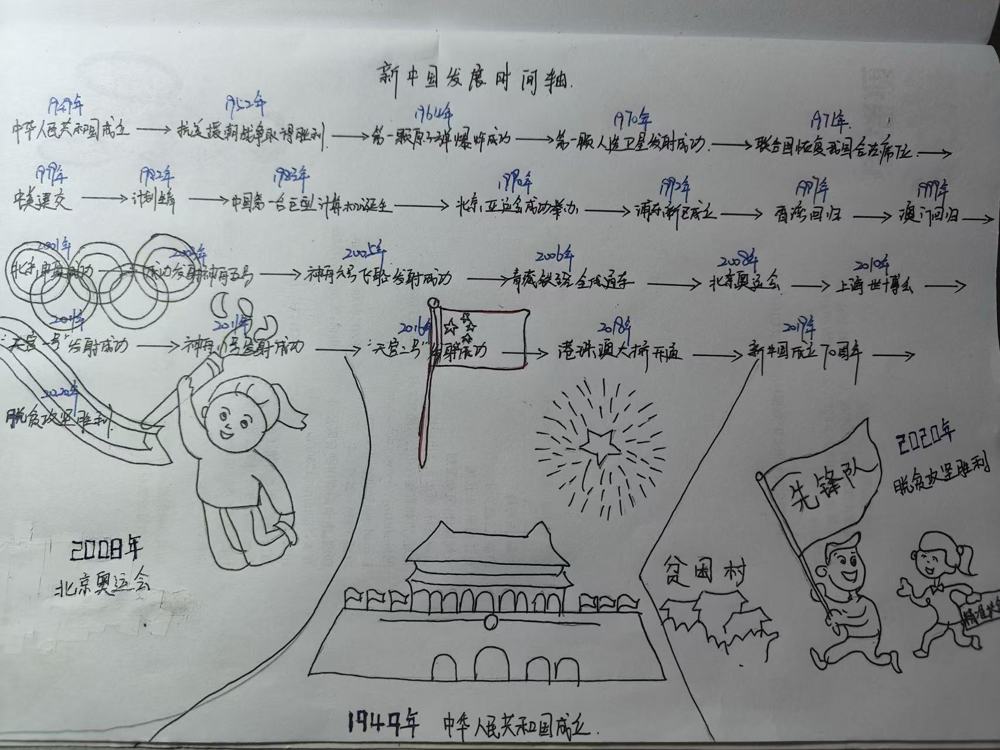 新中国发展时间轴
1949年 1952年 1964年 1970年 1971年
中华人民共和国成立 → 抗美援朝战争取得胜利 → 第一颗原子弹爆炸成功 → 第一颗人造卫星发射成功 → 联合国恢复我国合法席位 →
1979年 1982年 1983年 1990年 1992年 1997年 1999年
中美建交 → 计划生育 → 中国第一台巨型计算机诞生 → 北京亚运会成功举办 → 浦东新区成立 → 香港回归 → 澳门回归 →
2001年 2003年 2005年 2006年 2008年 2010年
北京申奥成功 → 成功发射神舟五号 → 神舟六号飞船发射成功 → 青藏铁路全线通车 → 北京奥运会 → 上海世博会 →
2011年 2011年 2016年 2018年 2019年
"天宫一号"发射成功 → 神舟八号发射成功 → "天宫二号"发射成功 → 港珠澳大桥开通 → 新中国成立70周年 →
2020年
脱贫攻坚胜利
2020年
脱贫攻坚胜利
先锋队
2008年
北京奥运会
贫困村
精准
1949年 中华人民共和国成立